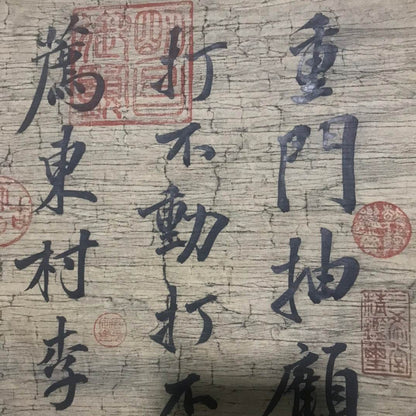 重門抽顧
打不動打不
薦東村李